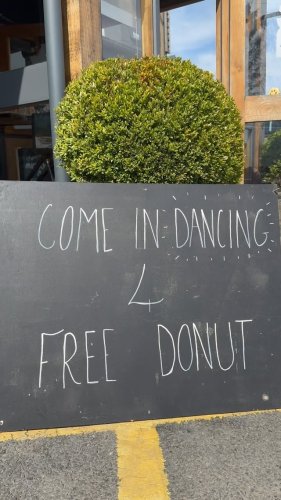 COME IN DANCING
4
FREE DONUT